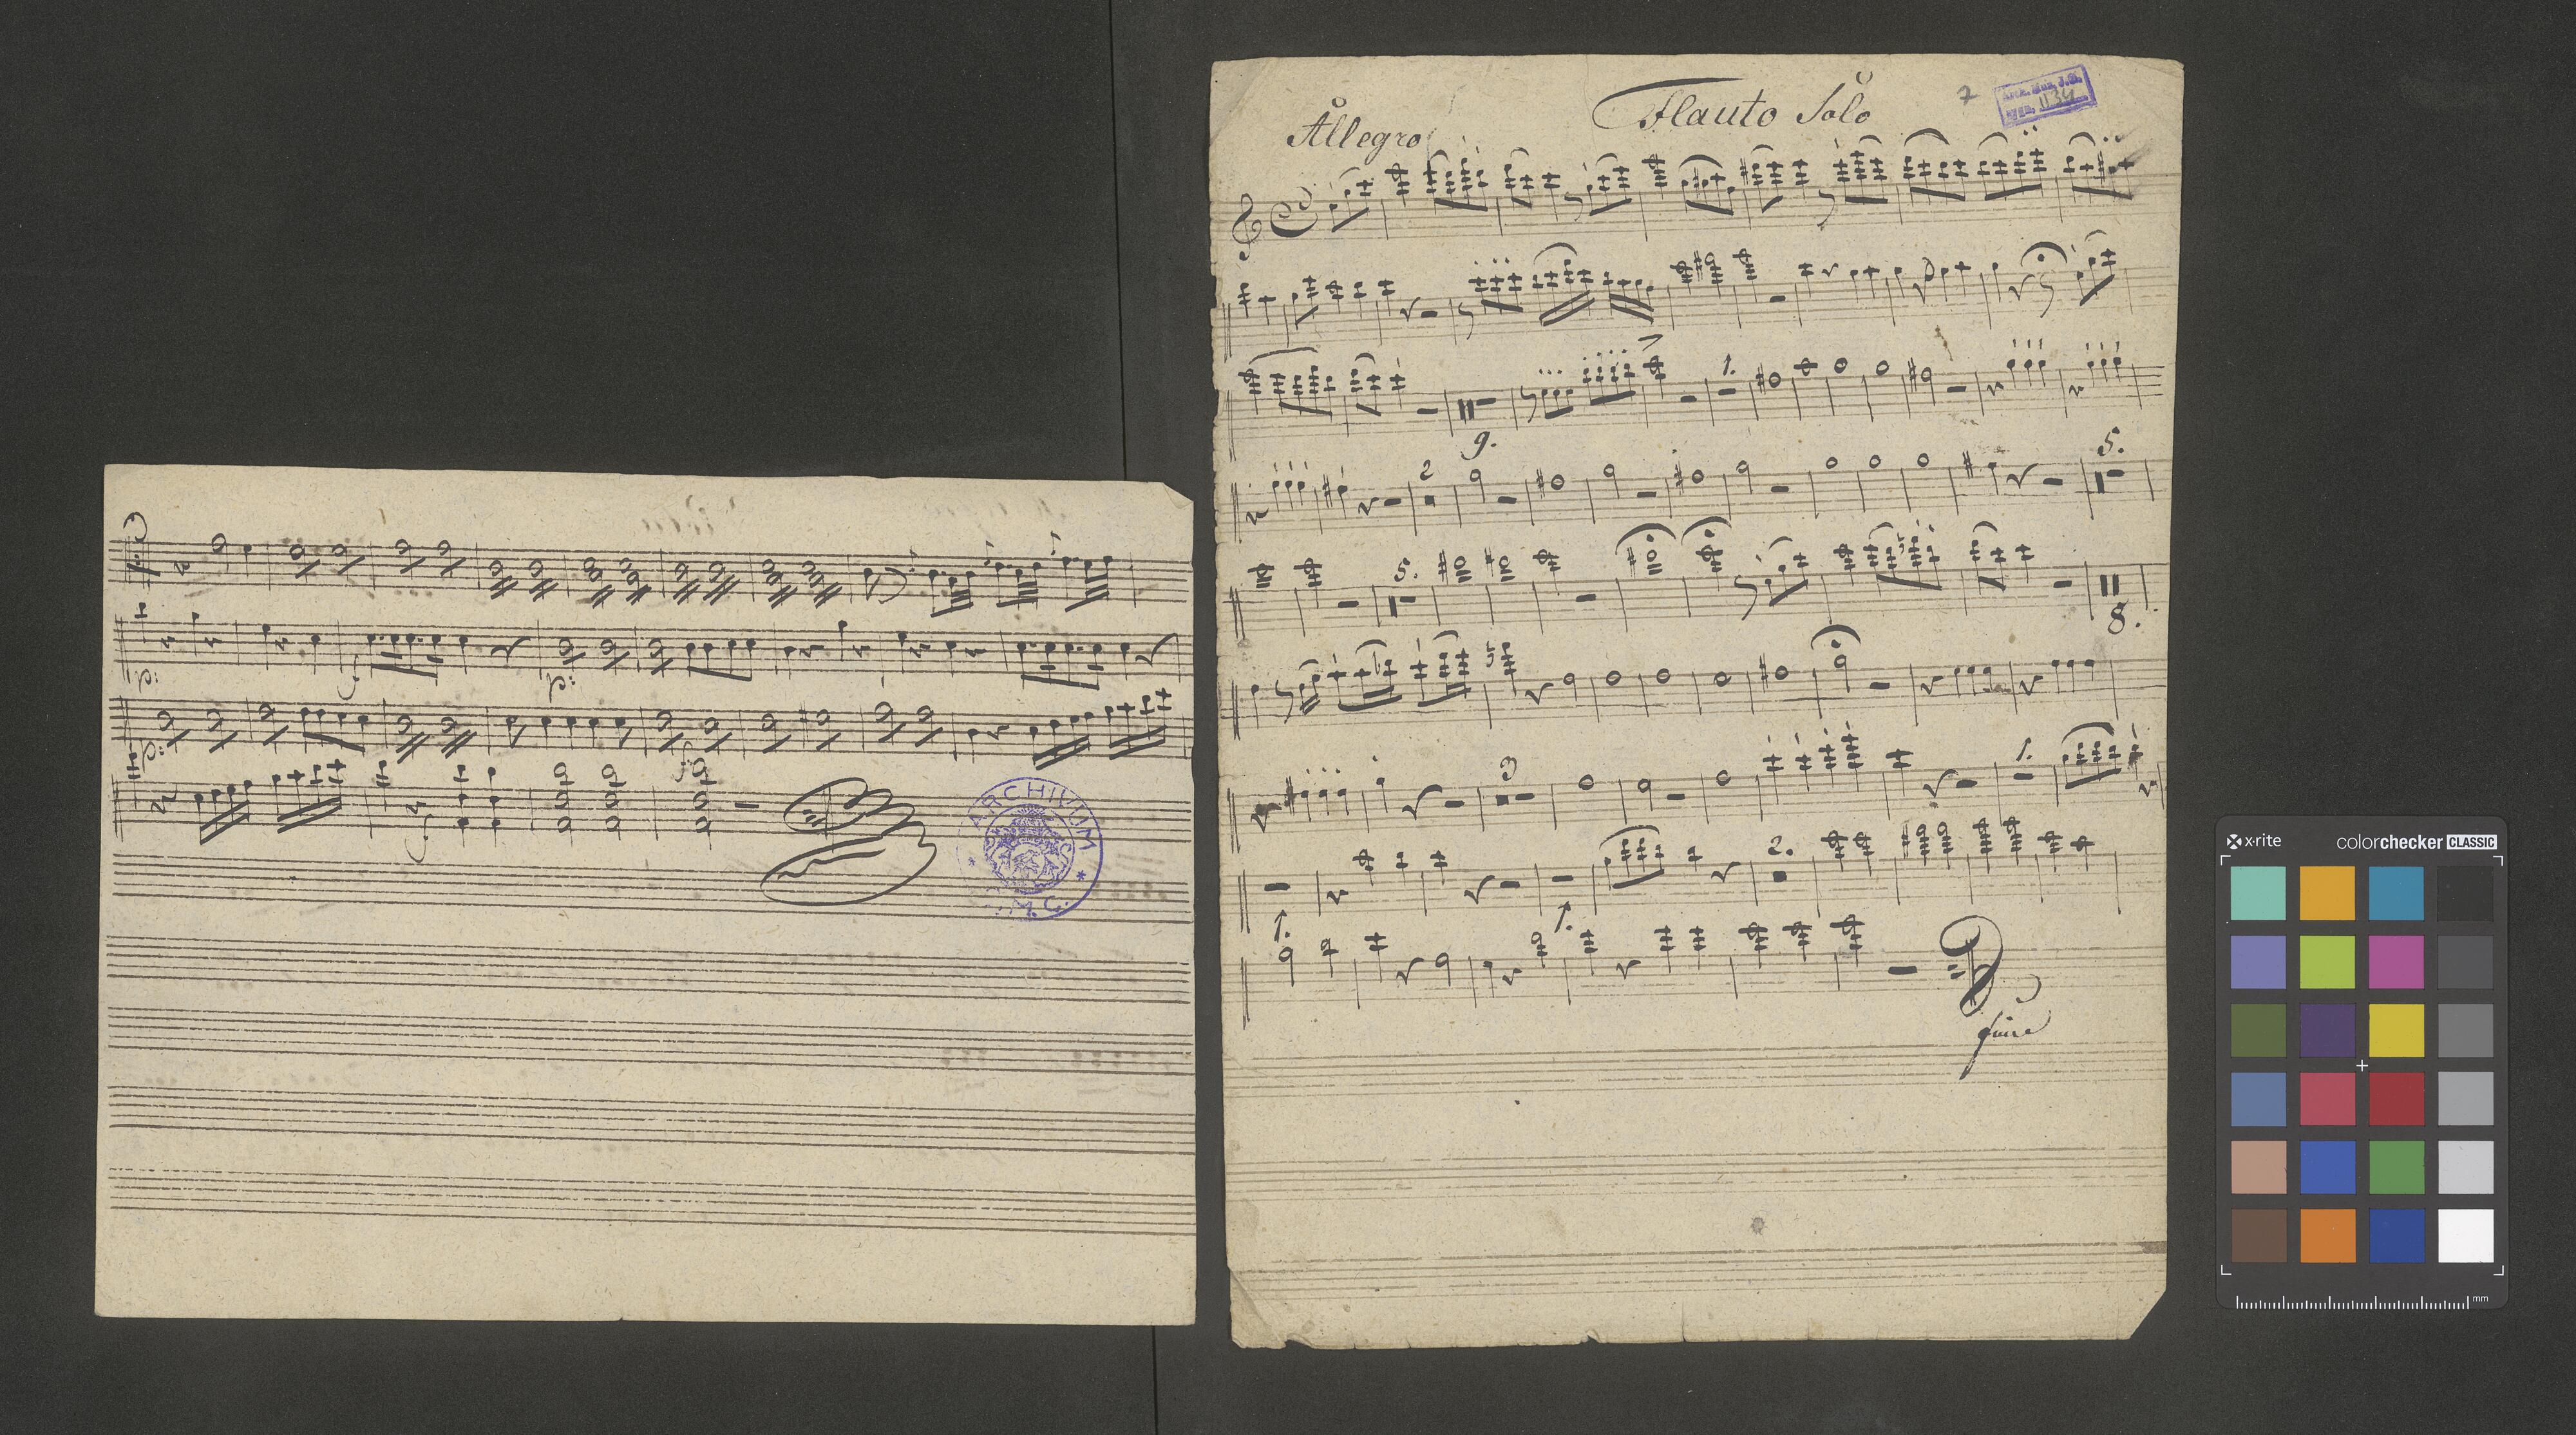 p:
f
p:
p:
f
f
ARCHIVUM
M. C.
Flauto Solo
7
1134
Allegro
1.
9.
2
5.
5.
8.
3
1.
2.
1.
1.
fine
x-rite
colorchecker CLASSIC
mm